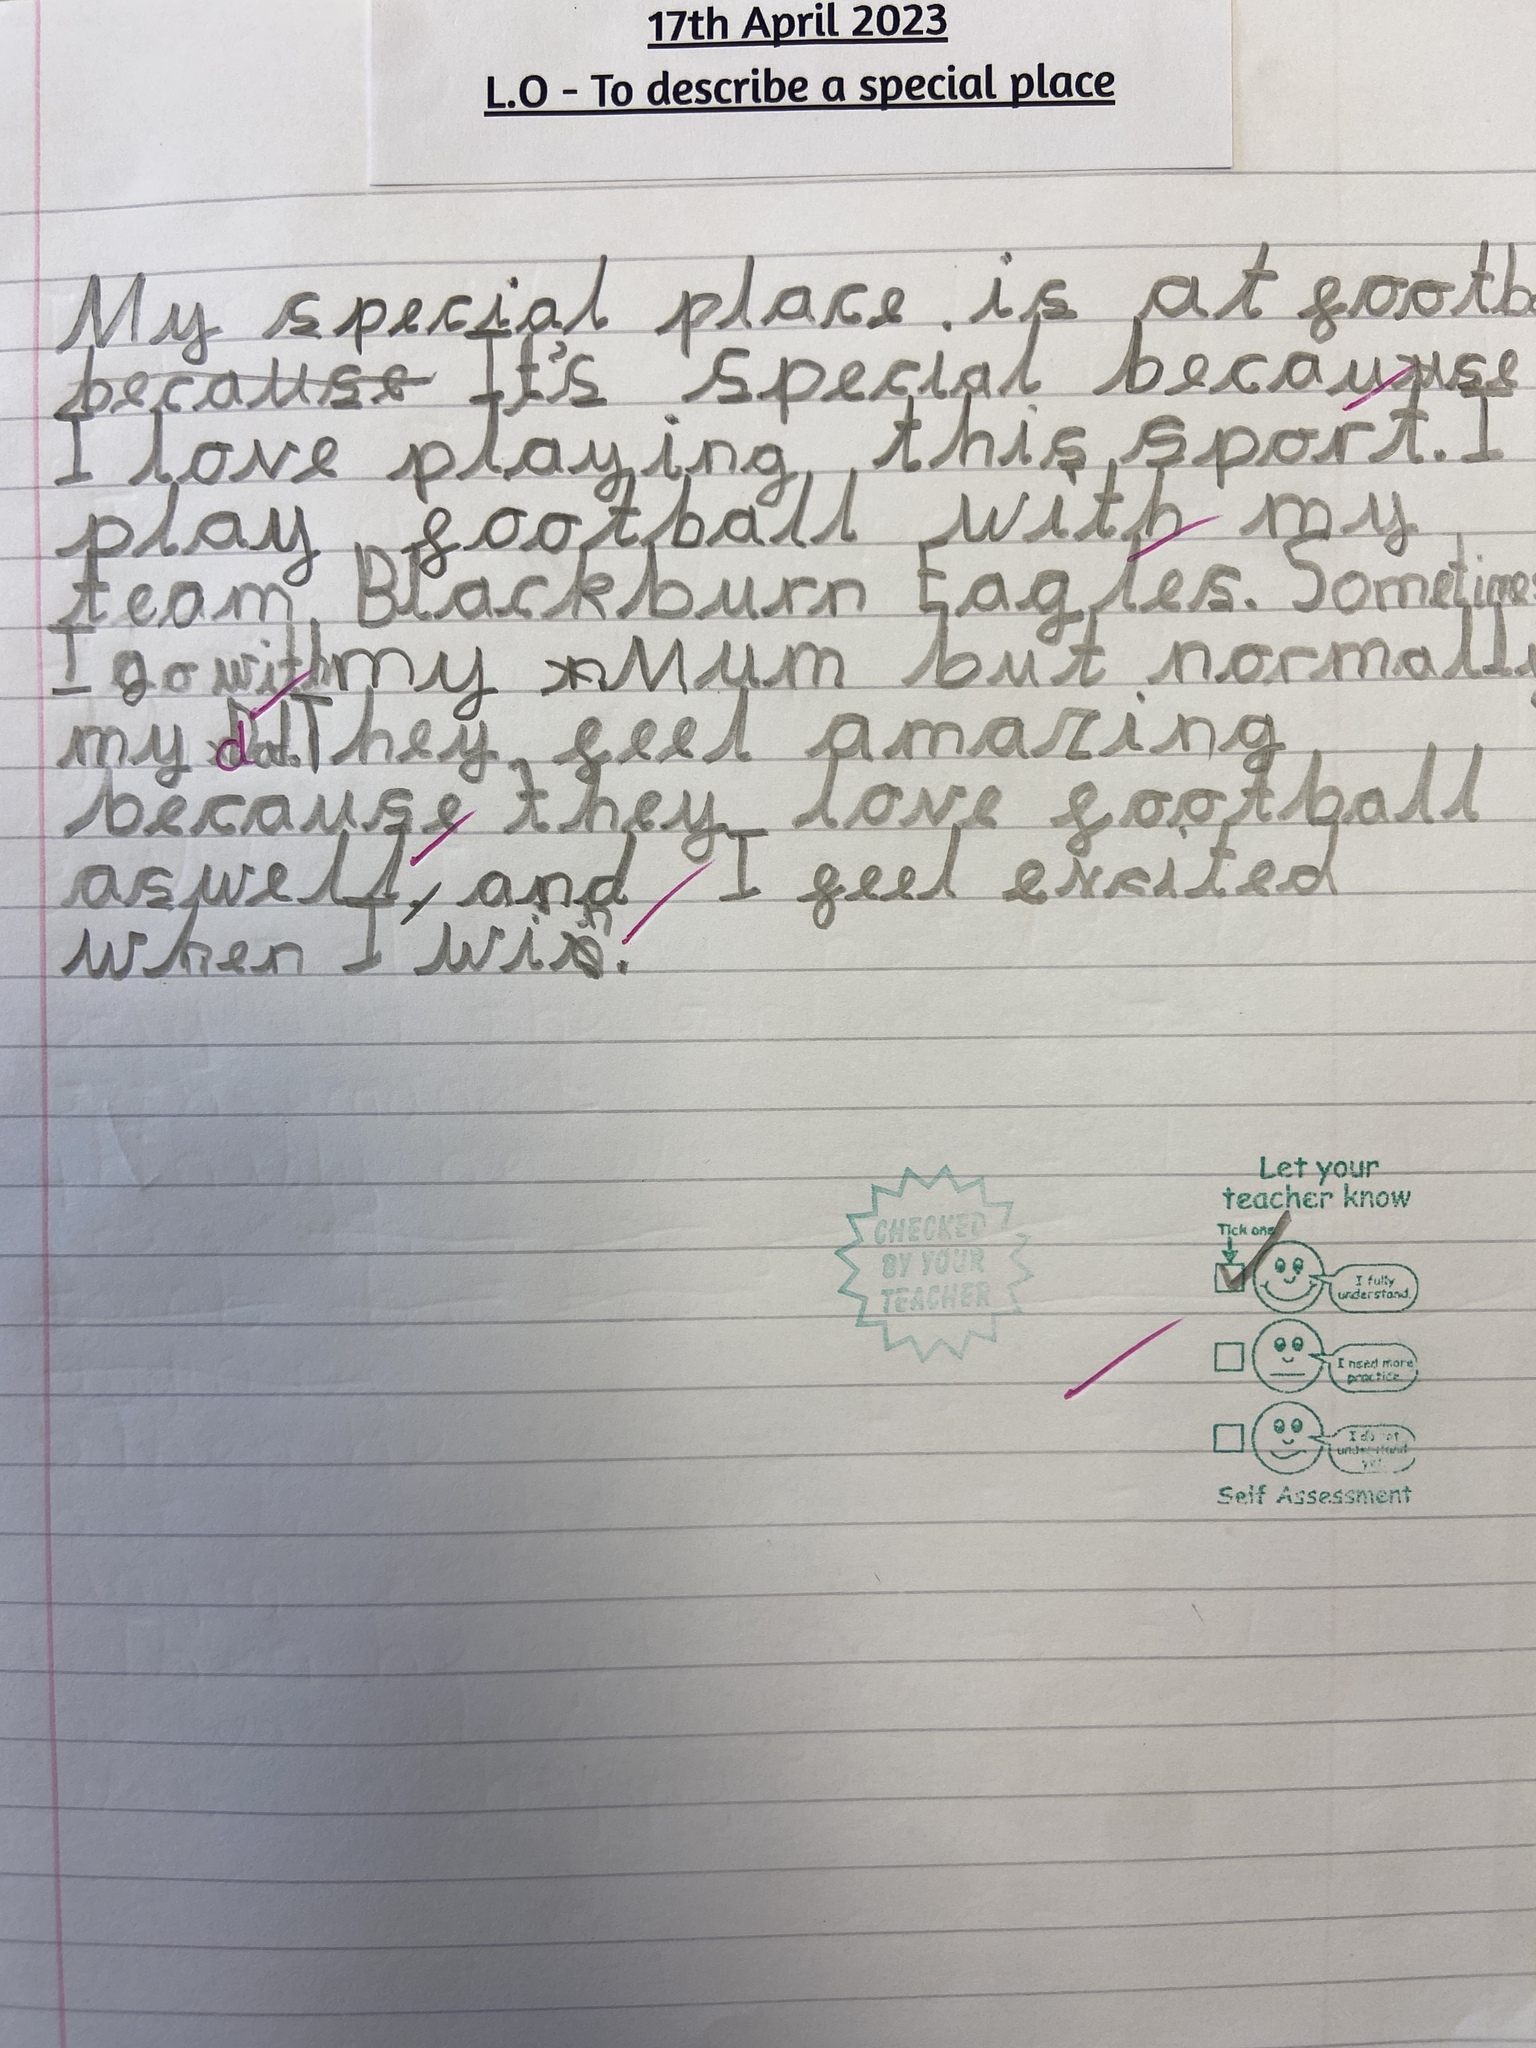 17th April 2023
L.O - To describe a special place
My special place. is at footb
because It's special because
I love playing this sport. I
play football with my
team Blackburn Eagles. Sometimes
I go with my Mum but normally
my dad. They feel amazing
because they love football
aswell, and I feel excited
when I win.
CHECKED
BY YOUR
TEACHER
Let your
teacher know
Tick one
I fully
understand.
I need more
practice
I do not
understand
yet.
Self Assessment